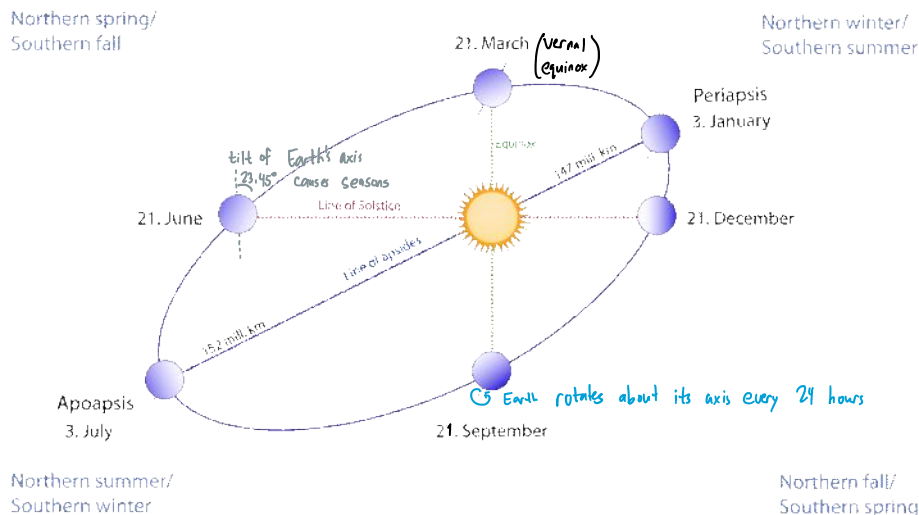 Northern spring/
Southern fall
Northern winter/
Southern summer
21. March
(vernal
equinox)
Periapsis
3. January
Equinox
147 mill. km
tilt of Earth's axis
23.45° causes seasons
Line of Solstice
21. June
21. December
Line of apsides
152 mill. km
Apoapsis
3. July
Earth rotates about its axis every 24 hours
21. September
Northern summer/
Southern winter
Northern fall/
Southern spring